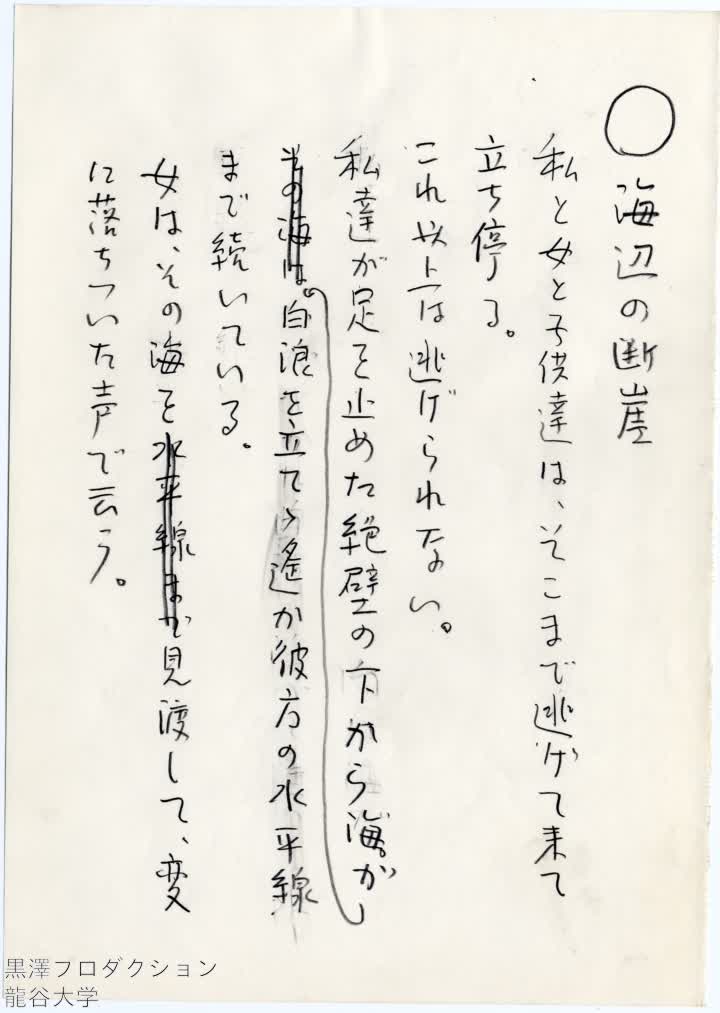 ○ 海辺の断崖
私と女と子供達は、そこまで逃げて来て
立ち停る。
これ以上は逃げられない。
私達が足を止めた絶壁の下から海が
その海は。白浪を立てゝ遙か彼方の水平線
まで続いている。
女は、その海を水平線まで見渡して、変
に落ちついた声で云う。
黒澤プロダクション
龍谷大学